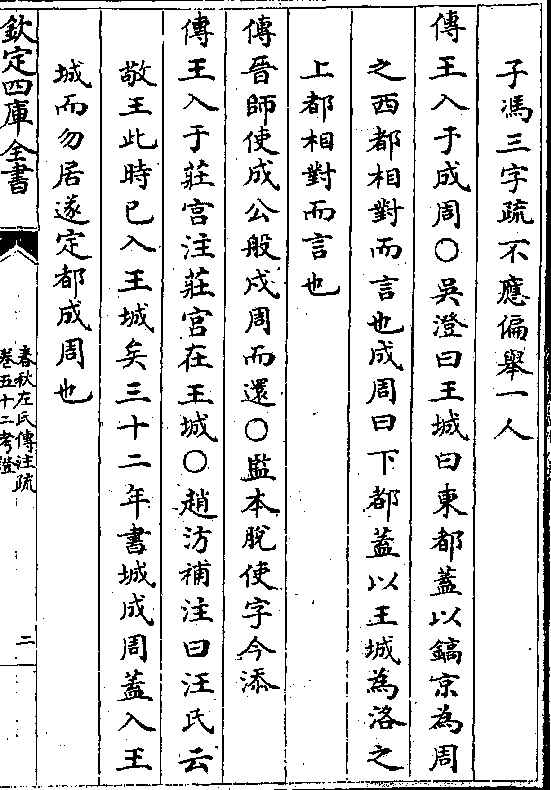 子馮三字疏不應偏舉一人
傳王入于成周○吳澄曰王城曰東都蓋以鎬京為周
之西都相對而言也成周曰下都蓋以王城為洛之
上都相對而言也
傳晉師使成公般戍周而還○監本脫使字今添
傳王入于莊宮注莊宮在王城○趙汸補注曰汪氏云
敬王此時已入王城矣三十二年書城成周蓋入王
城而勿居遂定都成周也
欽定四庫全書
春秋左氏傳注疏
卷五十二考證
二